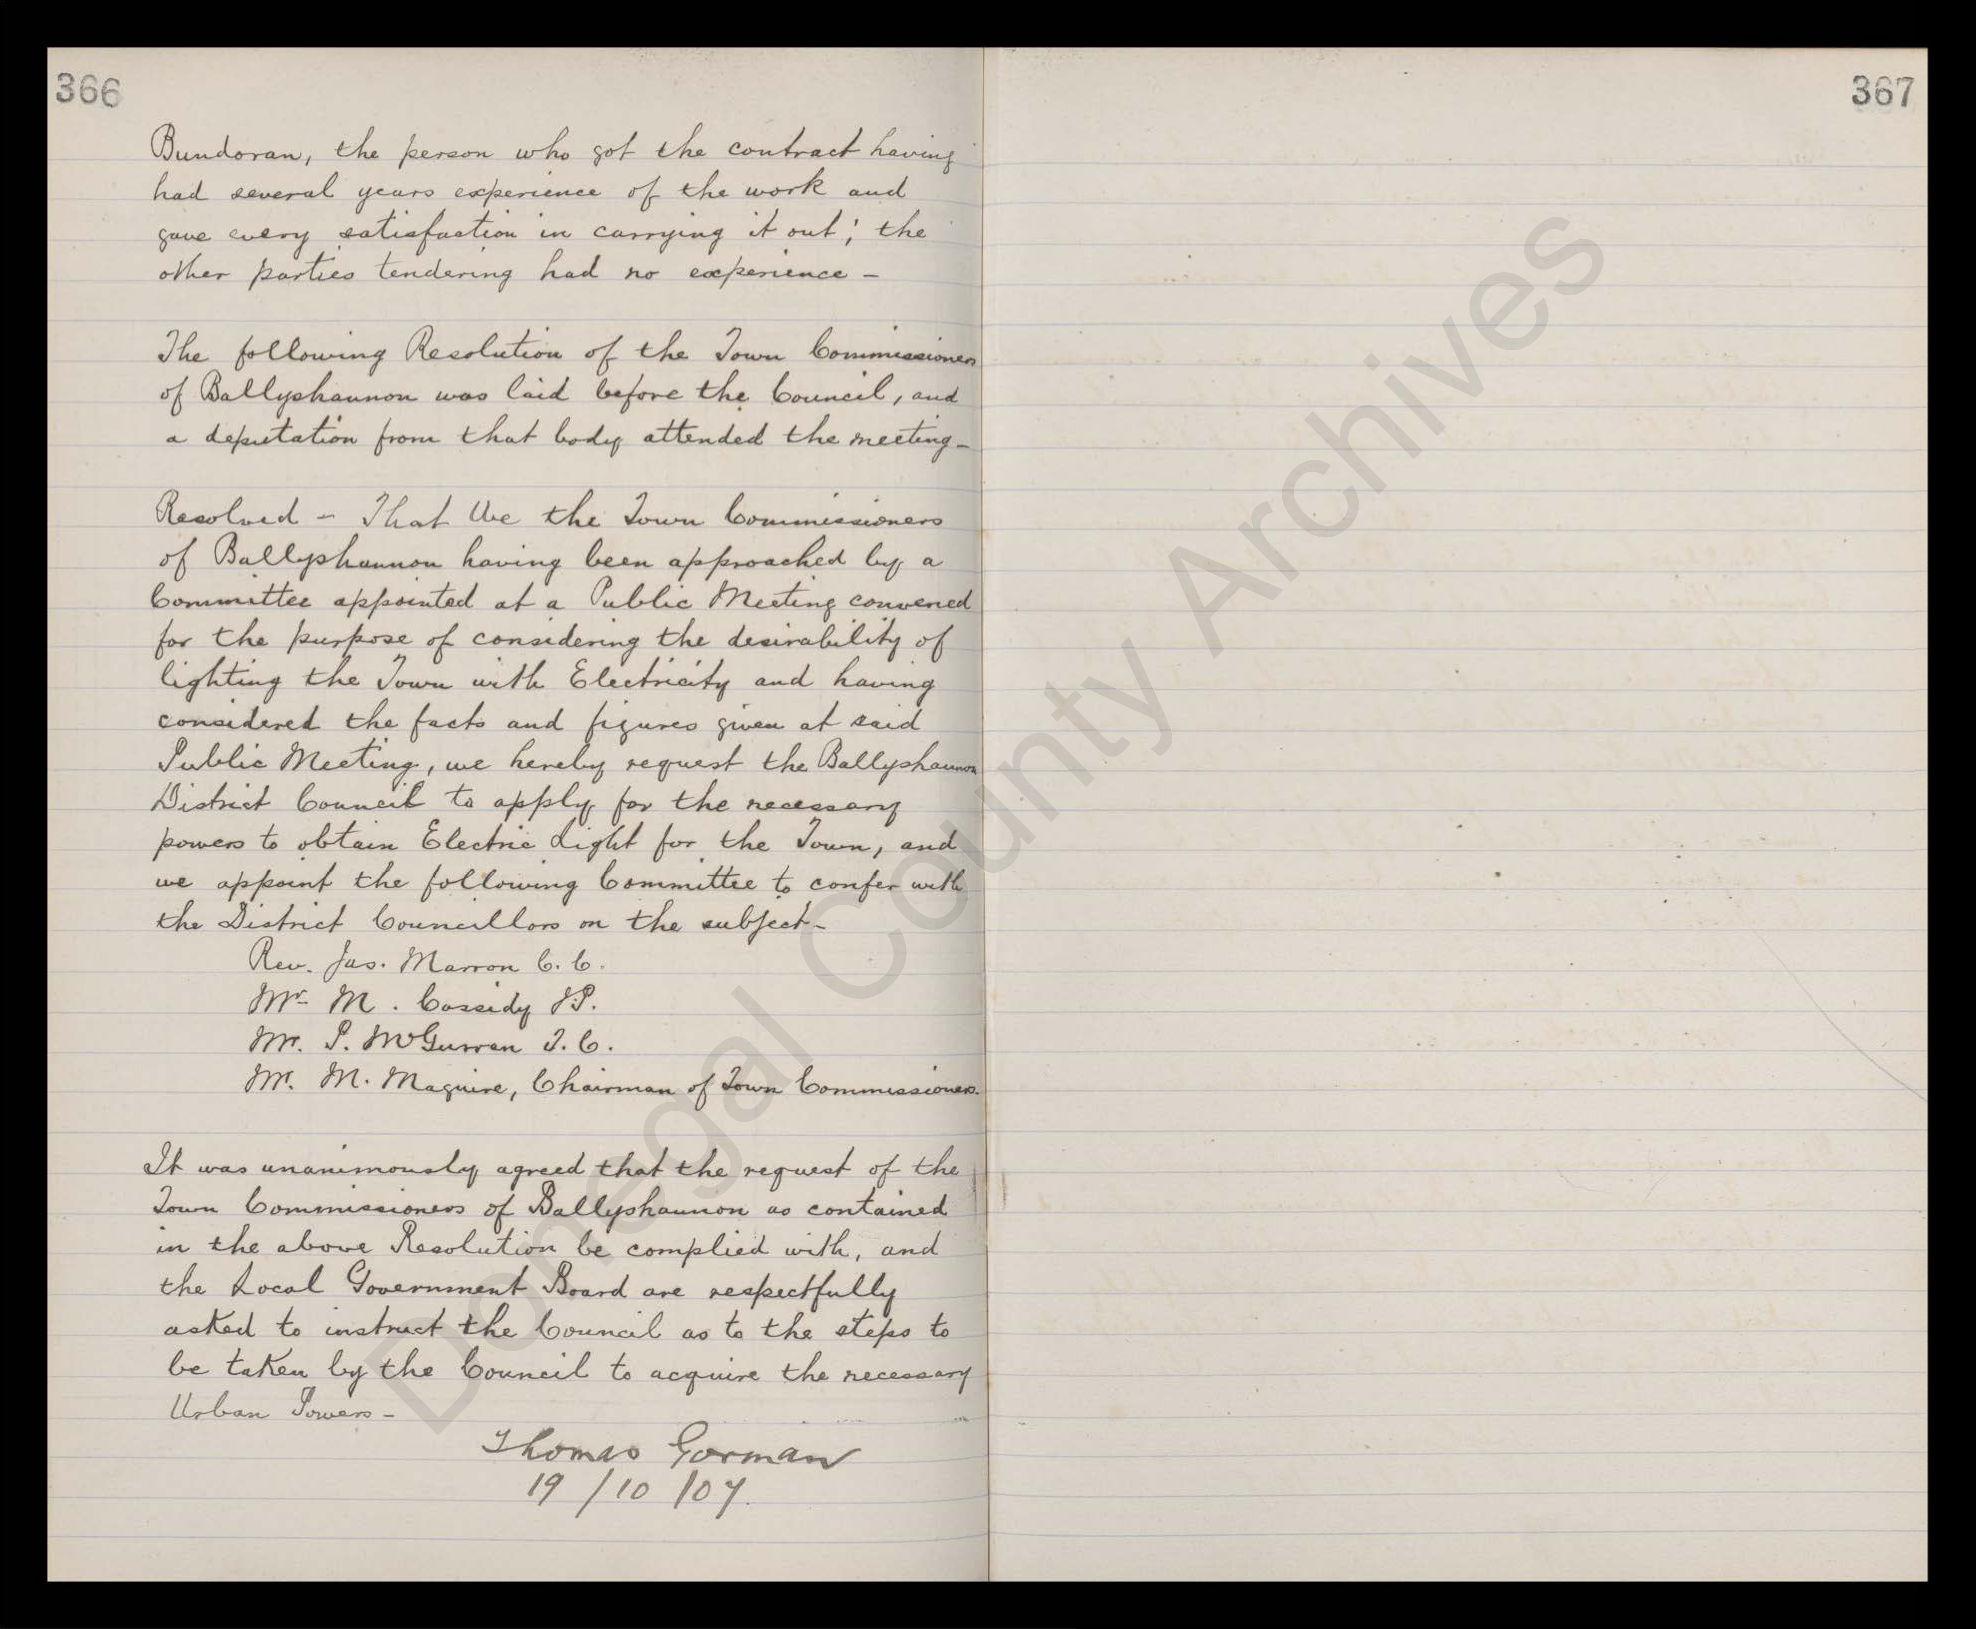 366
367
Bundoran, the person who got the contract having
had several years experience of the work and
gave every satisfaction in carrying it out; the
other parties tendering had no experience –
The following Resolution of the Town Commissioners
of Ballyshannon was laid before the Council, and
a deputation from that body attended the meeting –
Resolved – That We the Town Commissioners
of Ballyshannon having been approached by a
Committee appointed at a Public Meeting convened
for the purpose of considering the desirability of
lighting the Town with Electricity and having
considered the facts and figures given at said
Public Meeting, we hereby request the Ballyshannon
District Council to apply for the necessary
powers to obtain Electric Light for the Town, and
we appoint the following Committee to confer with
the District Councillors on the subject –
Rev. Jas. Marron C. C.
Mr. M. Cassidy J.P.
Mr. P. McGurran T. C.
Mr. M. Maguire, Chairman of Town Commissioners.
It was unanimously agreed that the request of the
Town Commissioners of Ballyshannon as contained
in the above Resolution be complied with, and
the Local Government Board are respectfully
asked to instruct the Council as to the steps to
be taken by the Council to acquire the necessary
Urban Powers –
Thomas Gorman
19/10/07.
Donegal County Archives